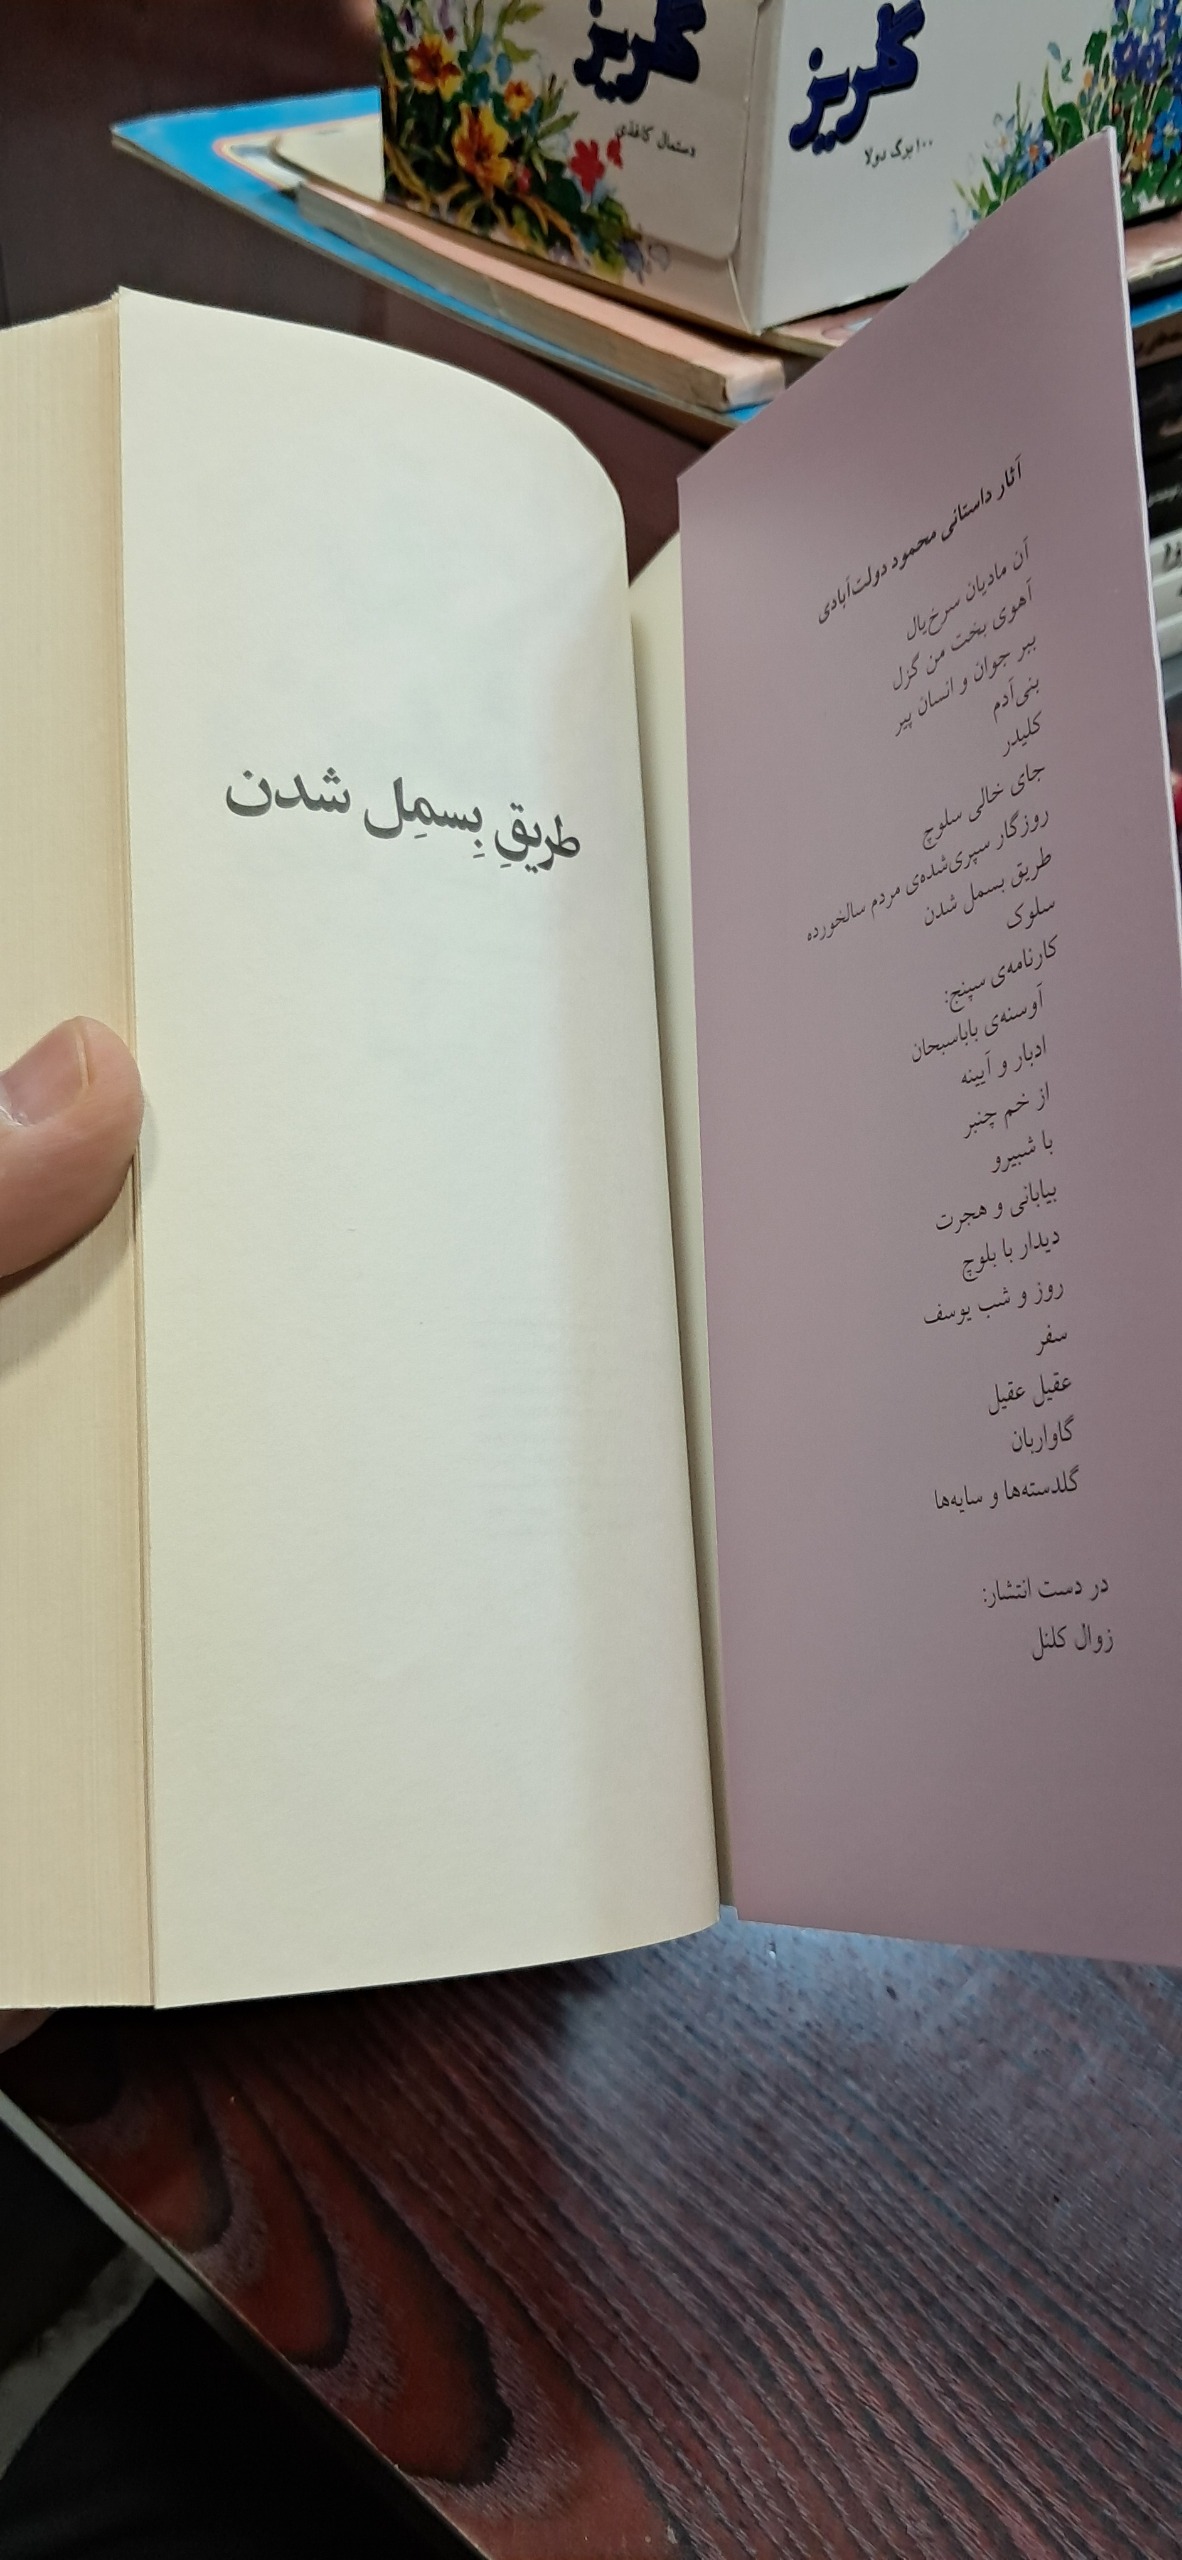 گلریز
دستمال کاغذی
گلریز
۱۰۰ برگ دولا
طریقِ بِسمِل شدن
آثار داستانی محمود دولت‌آبادی
آن مادیان سرخ‌یال
آهوی بخت من گزل
ببر جوان و انسان پیر
بنی‌آدم
کلیدر
جای خالی سلوچ
روزگار سپری‌شده‌ی مردم سالخورده
طریق بسمل شدن
سلوک
کارنامه‌ی سپنج:
آوسنه‌ی باباسبحان
ادبار و آیینه
از خم چنبر
با شبیرو
بیابانی و هجرت
دیدار با بلوچ
روز و شب یوسف
سفر
عقیل عقیل
گاواربان
گلدسته‌ها و سایه‌ها
در دست انتشار:
زوال کلنل